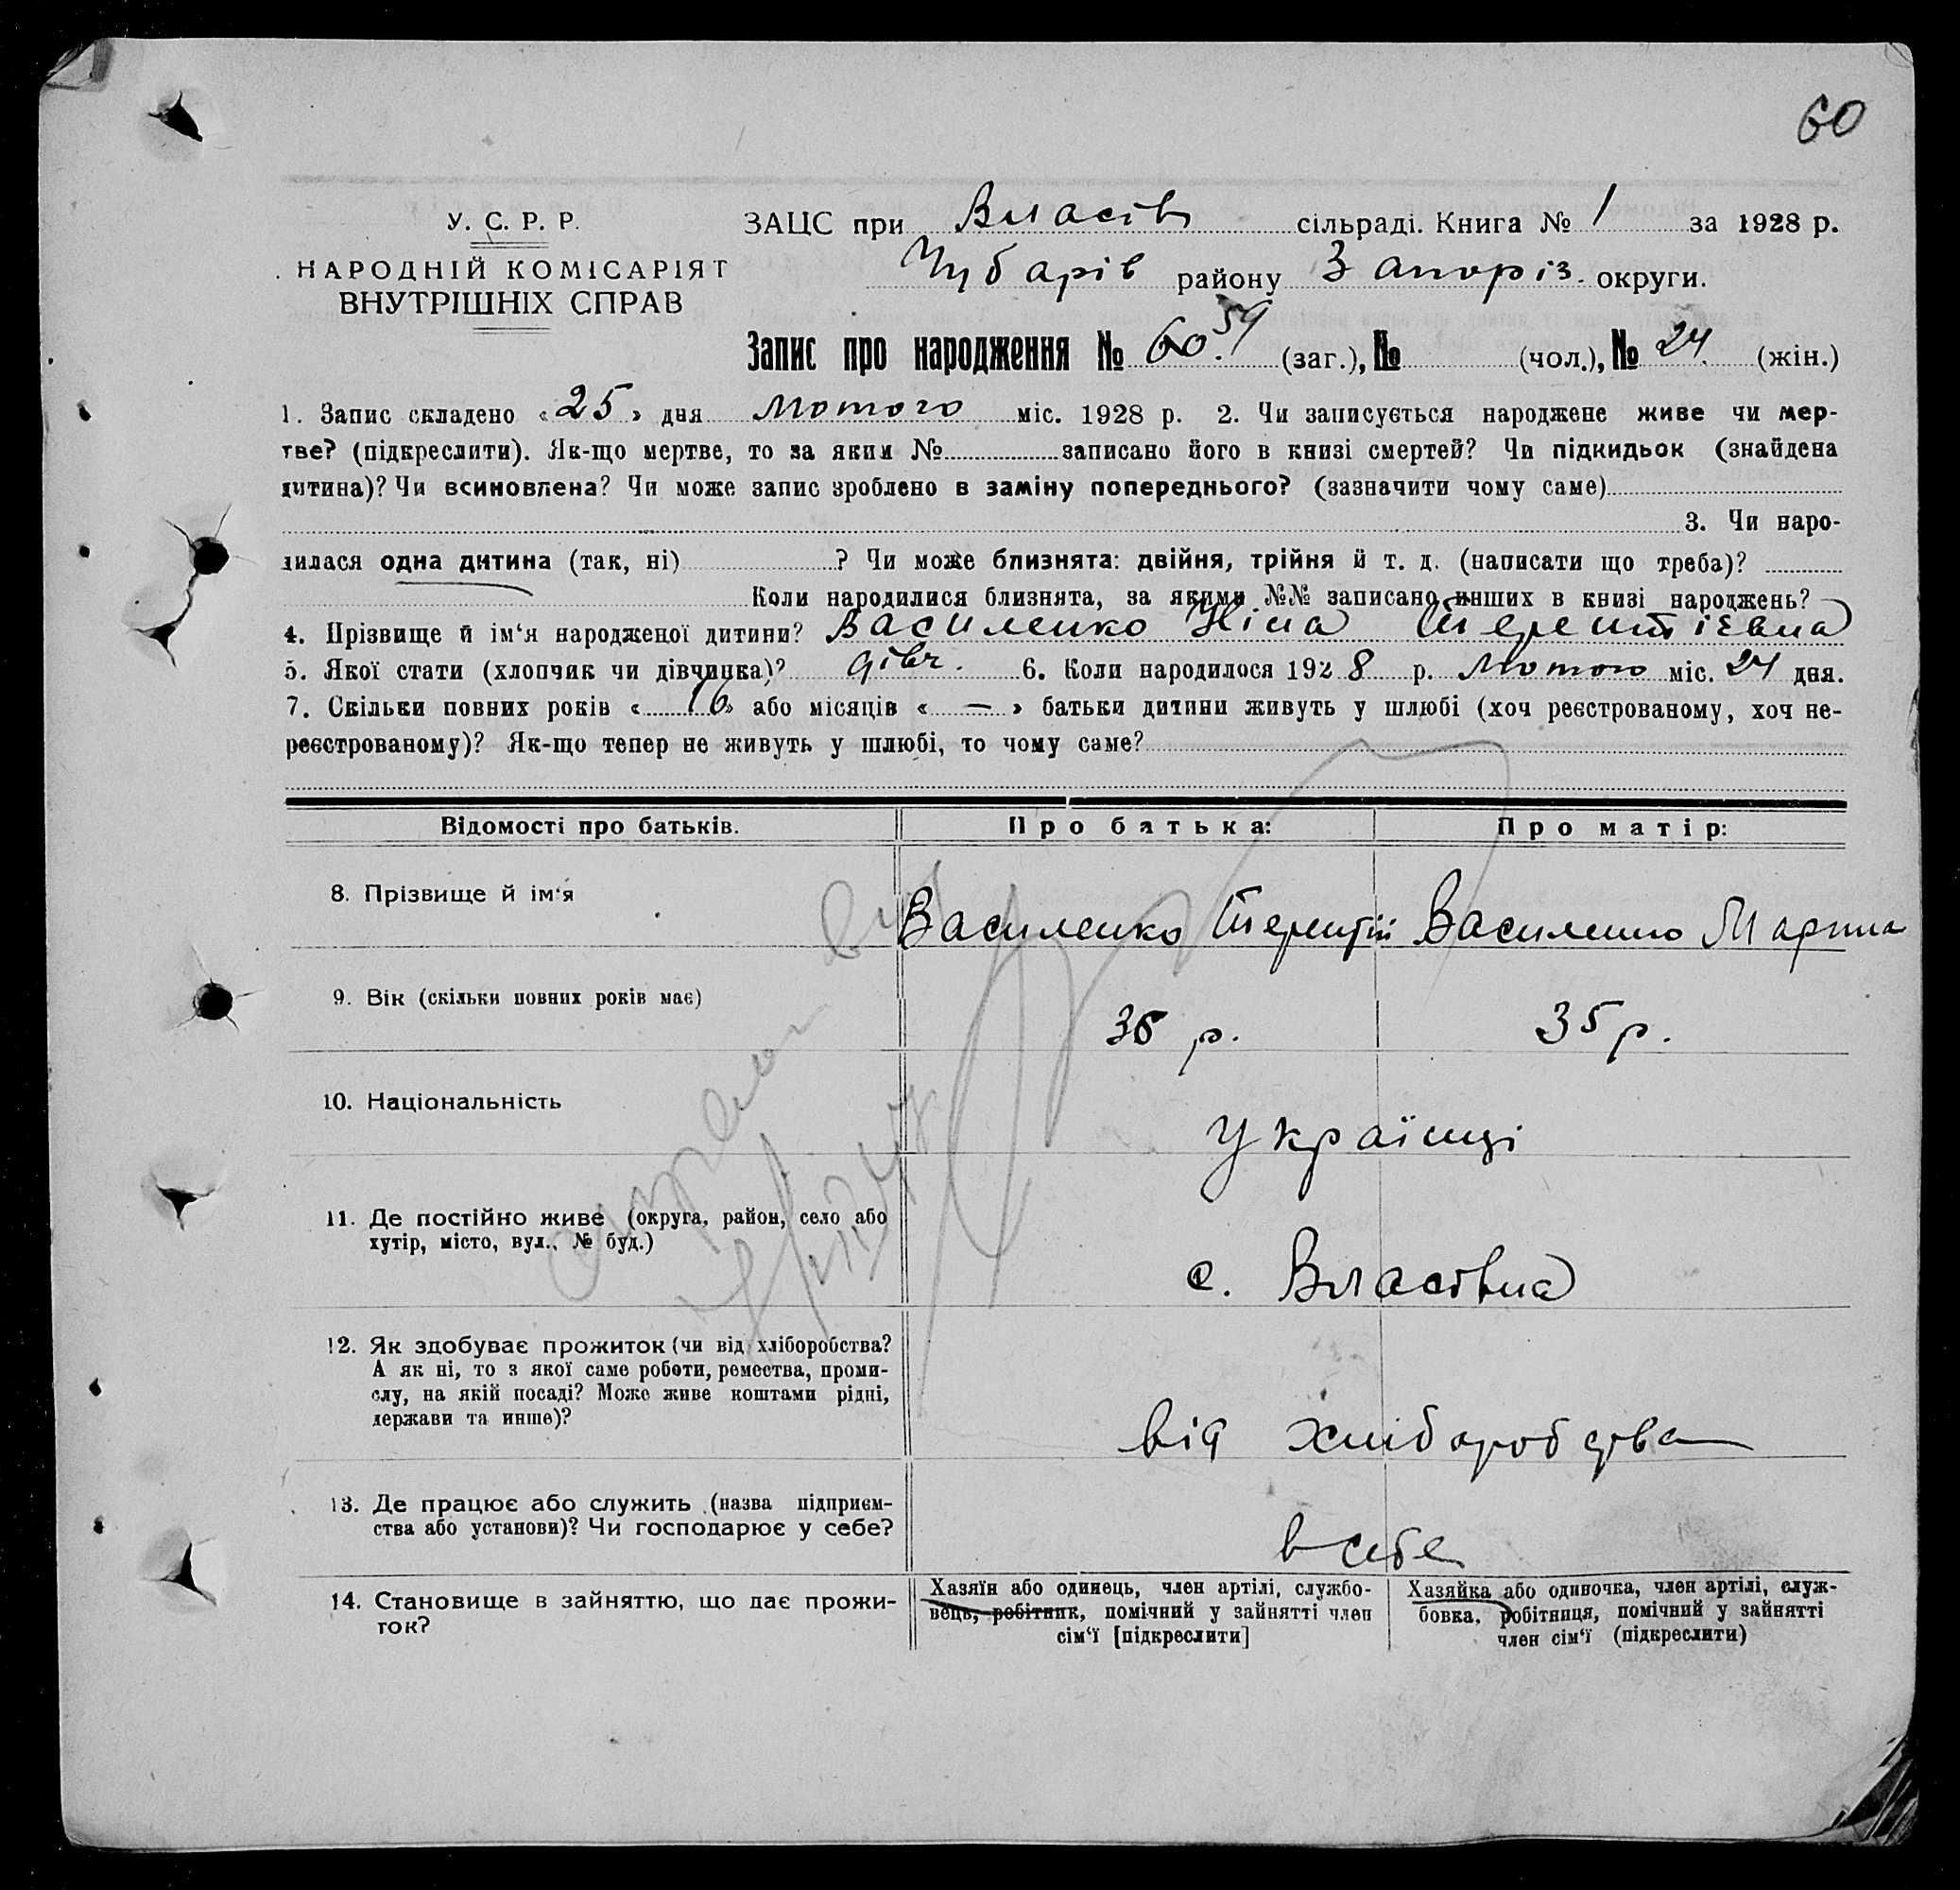 60
У. С. Р. Р.
НАРОДНІЙ КОМІСАРІЯТ
ВНУТРІШНІХ СПРАВ
ЗАЦС при Власів сільраді. Книга № 1 за 1928 р.
Чубарів району Запоріз. округи.
Запис про народження № 60. 54 (заг.), № (чол.), № 24. (жін.)
1. Запис складено «25» дня Лютого міс. 1928 р. 2. Чи записується народжене живе чи мер-
тве? (підкреслити). Як-що мертве, то за яким № записано його в книзі смертей? Чи підкидьок (знайдена
дитина)? Чи всиновлена? Чи може запис зроблено в заміну попереднього? (зазначити чому саме)
3. Чи наро-
дилася одна дитина (так, ні) ? Чи може близнята: двійня, трійня й т. д. (написати що треба)?
Коли народилися близнята, за якими №№ записано инших в книзі народжень?
4. Прізвище й ім‘я народженої дитини? Василенко Ніна Терентієвна
5. Якої стати (хлопчик чи дівчинка)? дівч. 6. Коли народилося 1928 р. Лютого міс. 24 дня.
7. Скільки повних років «16» або місяців « — » батьки дитини живуть у шлюбі (хоч реєстрованому, хоч не-
реєстрованому)? Як-що тепер не живуть у шлюбі, то чому саме?
Відомості про батьків. Про батька: Про матір:
8. Прізвище й ім‘я Василенко Терентій Василенко Марина
9. Вік (скільки повних років має) 36 р. 35 р.
10. Національність Українці
11. Де постійно живе (округа, район, село або
хутір, місто, вул., № буд.)
с. Власівка
12. Як здобуває прожиток (чи від хліборобства?
А як ні, то з якої саме роботи, ремества, проми-
слу, на якій посаді? Може живе коштами рідні,
держави та инше)?
від хліборобства
13. Де працює або служить (назва підприєм-
ства або установи)? Чи господарює у себе?
в себе
14. Становище в зайняттю, що дає прожи-
ток?
Хазяїн або одинець, член артілі, службо-
вець, робітник, помічний у зайнятті член
сім‘ї [підкреслити]
Хазяйка або одиночка, член артілі, служ-
бовка, робітниця, помічний у зайнятті
член сім‘ї (підкреслити)